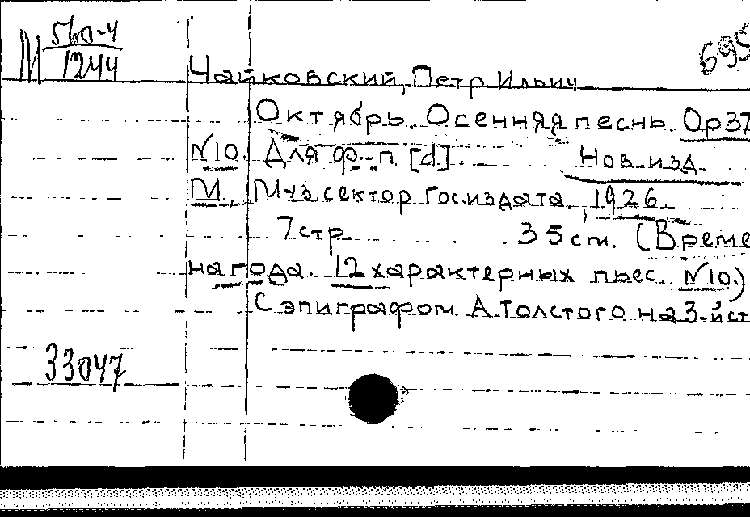 М 560-4
1244
695
Чайковский, Петр Ильич
Октябрь. Осенняя песнь. Op 37
№10. Для ф.-п. [d]. Нов. изд.
М., Муз сектор Госиздата, 1926.
7 стр. 35 cm. (Време
на года. 12 характерных пьес. №10.)
С эпиграфом А. Толстого на 3-й ст
33047